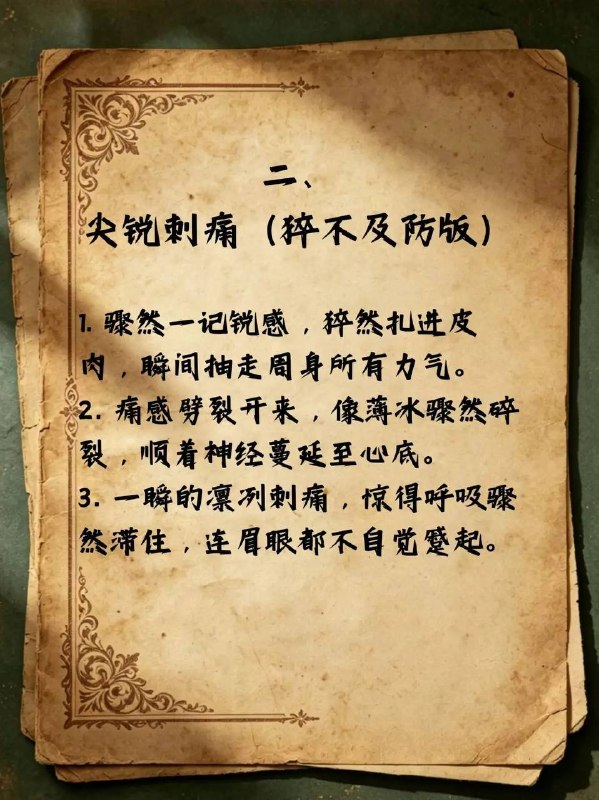 二、
尖锐刺痛（猝不及防版）
1. 骤然一记锐感，猝然扎进皮
肉，瞬间抽走周身所有力气。
2. 痛感劈裂开来，像薄冰骤然碎
裂，顺着神经蔓延至心底。
3. 一瞬的凛冽刺痛，惊得呼吸骤
然滞住，连眉眼都不自觉蹙起。